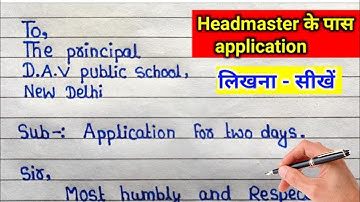 To,
The principal
D.A.V public school,
New Delhi
Sub-: Application for two days.
Sir,
Most humbly and Respec
Headmaster के पास
application
लिखना - सीखें